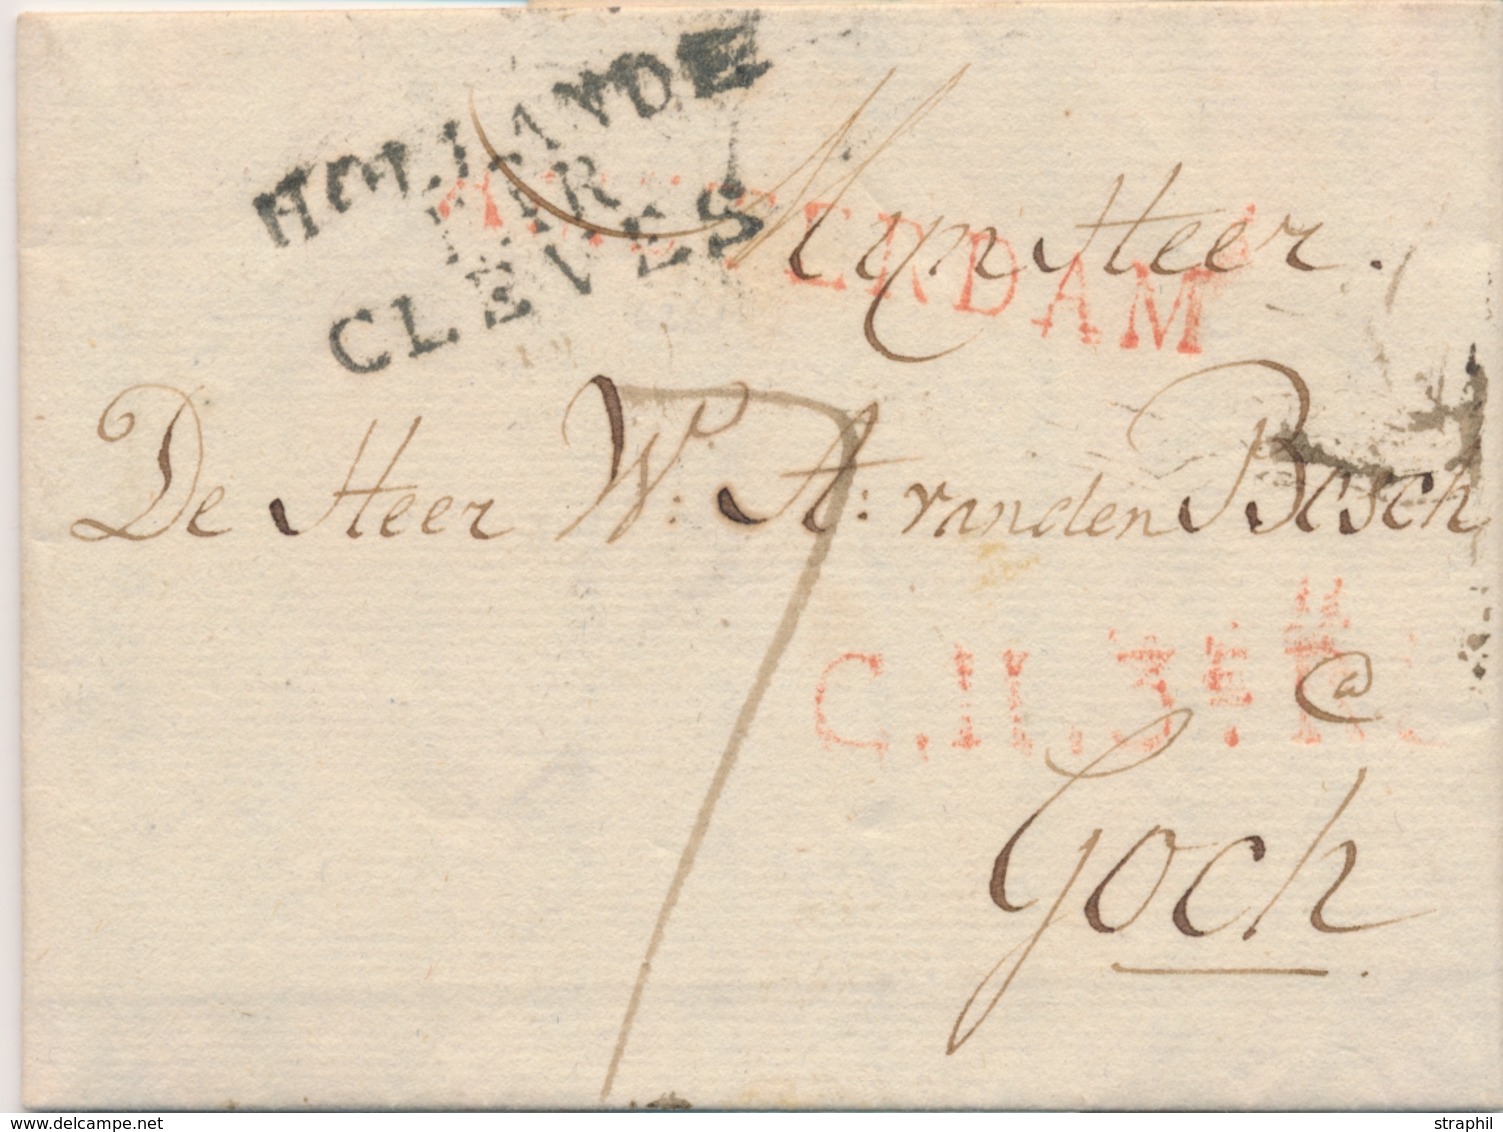 HOLLANDE
PAR
CLEVES
AMSTERDAM
Mÿn Heer.
De Heer W: A: van den Bosch
7
C.H.3e.R.
a
Goch
www.delcampe.net
straphil